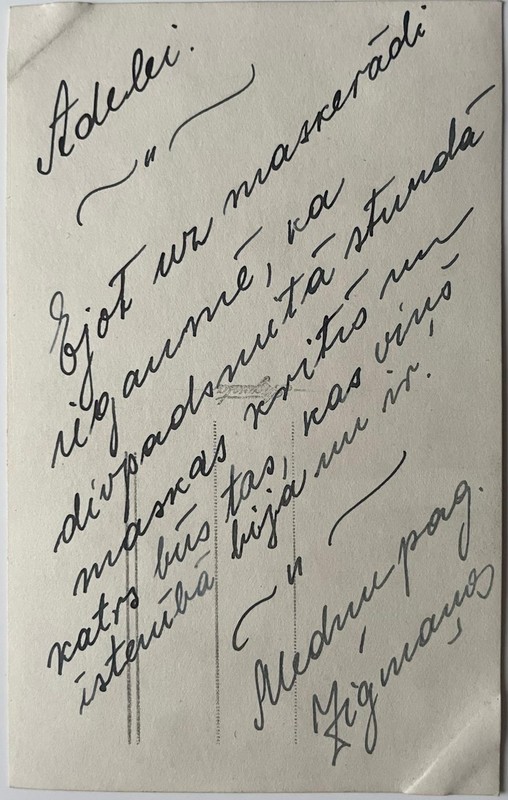 Adelei.
Ejot uz maskerādi
iegaumē, ka
divpadsmitā stundā
maskas kritīs un
katrs būs tas, kas viņš
īstenībā bija un ir.
Medņu pag.
Zigmaņos